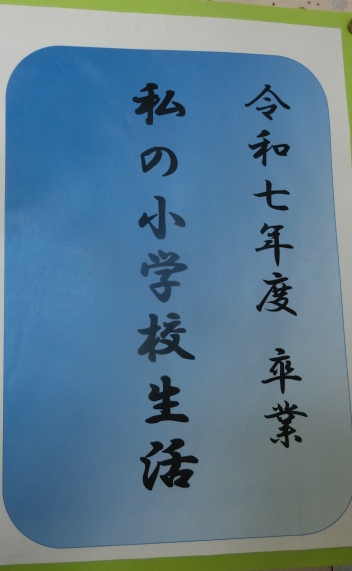 令和七年度 卒業
私の小学校生活